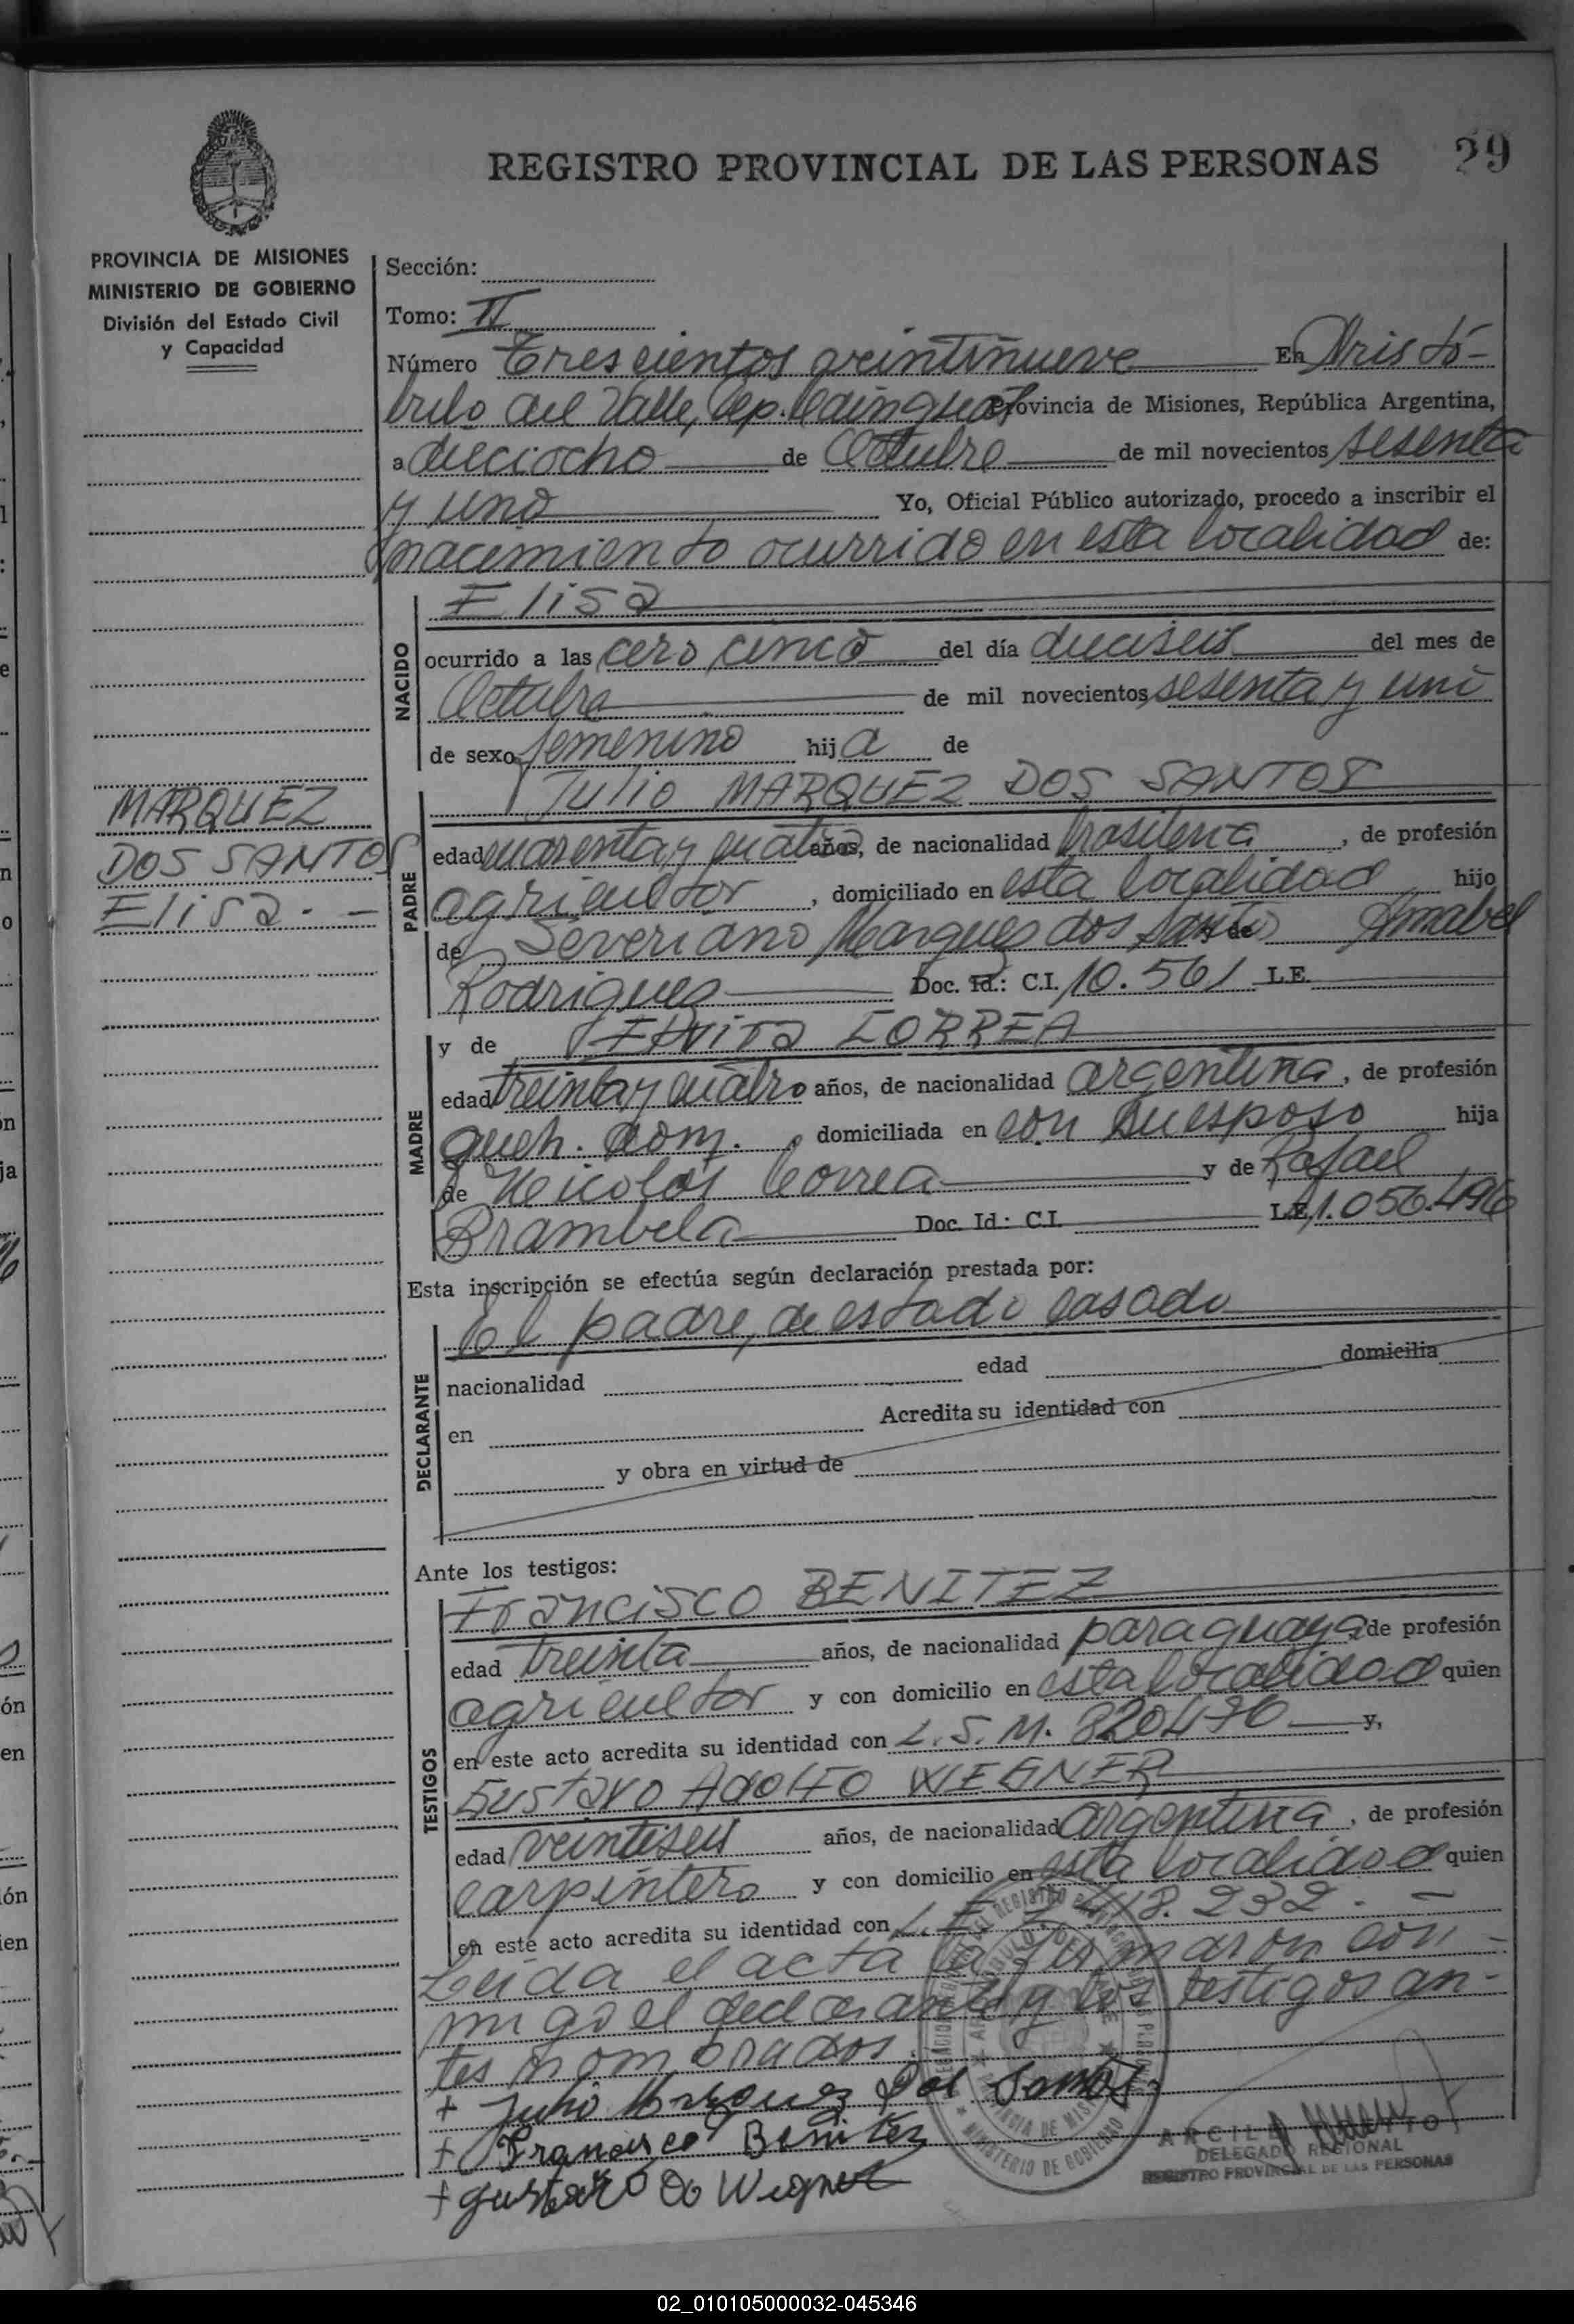 REGISTRO PROVINCIAL DE LAS PERSONAS 29
PROVINCIA DE MISIONES
MINISTERIO DE GOBIERNO
División del Estado Civil
y Capacidad
Sección:
Tomo: II
Número Trescientos veintinueve En Aristó-
bulo del Valle, Dep. Cainguás Provincia de Misiones, República Argentina,
a dieciocho de Octubre de mil novecientos sesenta
y uno Yo, Oficial Público autorizado, procedo a inscribir el
nacimiento ocurrido en esta localidad de:
NACIDO
Elisa
ocurrido a las cero cinco del día dieciseis del mes de
Octubre de mil novecientos sesenta y uno
de sexo femenino hija de
MARQUEZ
DOS SANTOS
Elisa. -
PADRE
Julio MARQUEZ DOS SANTOS
edad cuarenta y cuatro años, de nacionalidad brasilera, de profesión
agricultor, domiciliado en esta localidad hijo
de Severiano Marques dos Santo y de Amabel
Rodrigues Doc. Id.: C.I. 10.561 L.E.
MADRE
y de CORREA
edad treinta y cuatro años, de nacionalidad argentina, de profesión
queh. dom., domiciliada en con su esposo hija
de Nicolás Correa y de Rafael
Brambela Doc. Id.: C.I. L.E. 1.056.496
Esta inscripción se efectúa según declaración prestada por:
DECLARANTE
El padre, de estado casado
nacionalidad edad domicilia
en Acredita su identidad con
y obra en virtud de
Ante los testigos:
TESTIGOS
Francisco BENITEZ
edad treinta años, de nacionalidad paraguaya de profesión
agricultor y con domicilio en esta localidad quien
en este acto acredita su identidad con L.S.M. 820476 y,
Gustavo Adolfo WEGNER
edad veintiseis años, de nacionalidad argentina, de profesión
carpintero y con domicilio en esta localidad quien
en este acto acredita su identidad con L.E. 7.418.232. -
Leida el acta la firmaron con-
migo el declarante y los testigos an-
tes nombrados.
+ Julio Marquez Dos Santos
+ Francisco Benitez
+ Gustavo Wegner
MINISTERIO DE GOBIERNO
DELEGADO REGIONAL
REGISTRO PROVINCIAL DE LAS PERSONAS
02_010105000032-045346